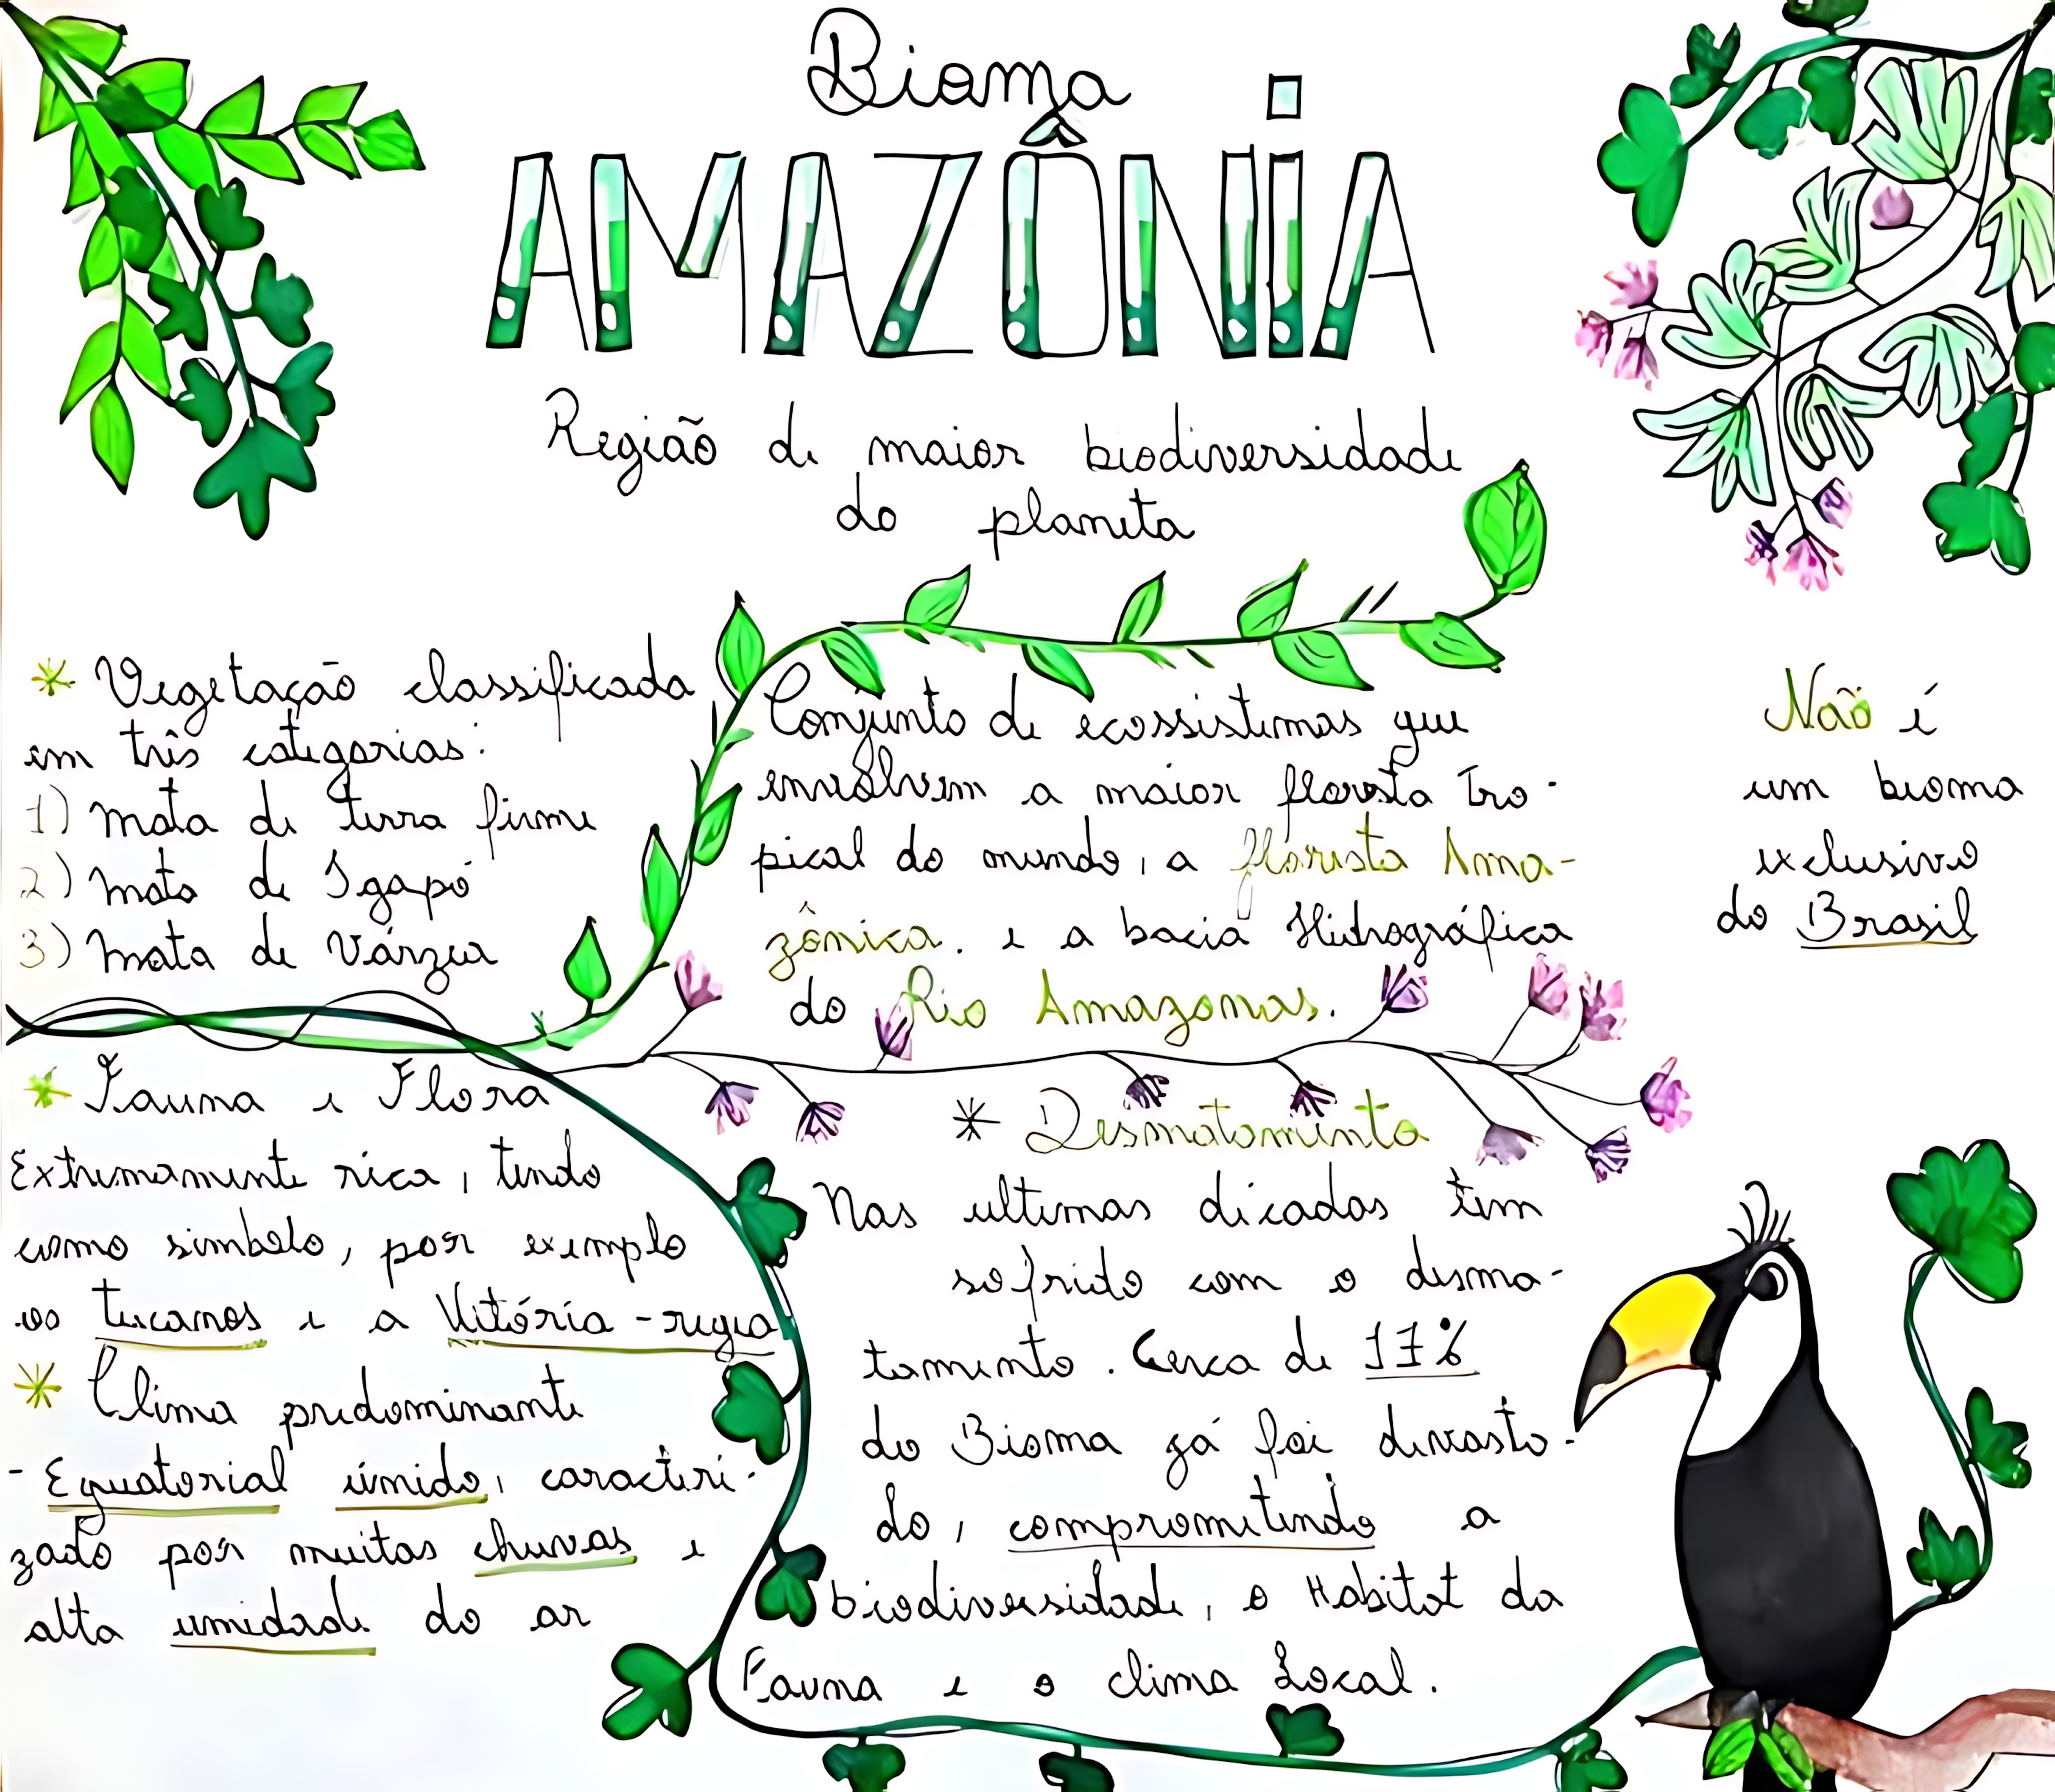 Bioma
AMAZÔNiA
Região de maior biodiversidade
do planeta
* Vegetação classificada
em três categorias:
1) Mata de terra firme
2) Mata de Igapó
3) Mata de Várzea
Conjunto de ecossistemas que
envolvem a maior floresta tro-
pical do mundo, a floresta Ama-
zônica. e a bacia Hidrográfica
do Rio Amazonas.
Não é
um bioma
exclusivo
do Brasil
* Fauna e Flora
Extremamente rica, tendo
como simbolo, por exemplo
os tucanos e a Vitória-regia
* Clima predominante
- Equatorial úmido, caracteri-
zado por muitas chuvas e
alta umidade do ar
* Desmatamento
Nas ultimas décadas tem
sofrido com o desma-
tamento. Cerca de 17%
do Bioma já foi devasta-
do, comprometendo a
biodiversidade, o Habitat da
Fauna e o clima Local.